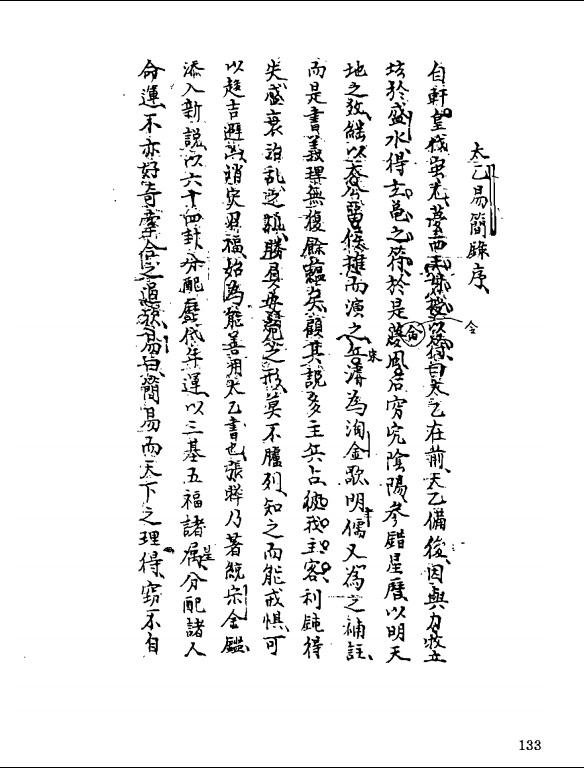 太乙易簡錄序
自軒皇伐蚩尤夢西王母授以符曰太乙在前天乙備後因與力牧立
坛於盛水得玄龜之符於是命風后穷究陰陽參錯星曆以明天
地之数継以 留侯 而演之宋 濟為淘金歌明儒又為之補註
而是書義理無復餘蘊矣顧其説多主兵占彼我主客利鈍得
失盛衰治乱之 勝負 之形莫不臚列知之而能戒惧可
以趋吉避凶消灾 福始為能善用太乙書也張 乃著統宗金鑑
添入新説以六十四卦分配歷代年運以三基五福諸星分配諸人
命運不亦好奇牽合之過欤易曰簡易而天下之理得窃不自
133